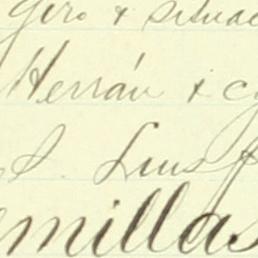 giro & situac
Herrán & c
S. Luis P
millas